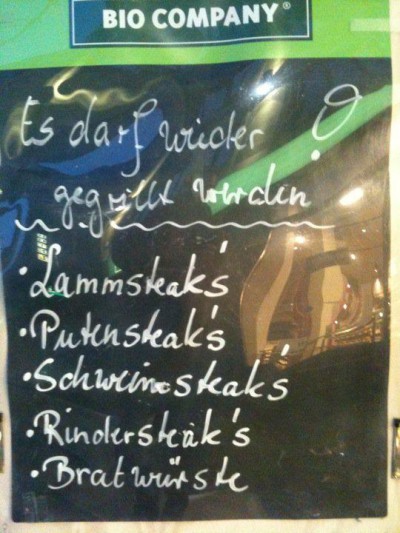 BIO COMPANY®
Es darf wieder
gegrillt werden!
• Lammsteak's
• Putensteak's
• Schweinesteak's
• Rindersteak's
• Bratwürste